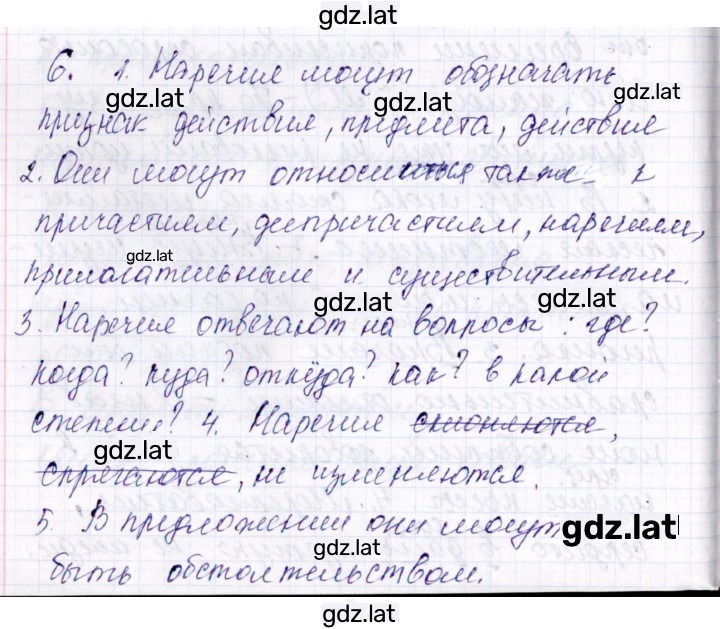 gdz.lat
6. 1. Наречия могут обозначать
gdz.lat gdz.lat
признак действия, предмета, действия
2. Они могут относиться также к
gdz.lat
причастиям, деепричастиям, наречиям,
gdz.lat
прилагательным и существительным.
gdz.lat gdz.lat
3. Наречия отвечают на вопросы: где?
когда? куда? откуда? как? в какой
степени? 4. Наречия склоняются,
gdz.lat
спрягаются, не изменяются.
5. В предложении они могут
gdz.lat gdz.lat
быть обстоятельством.
gdz.lat